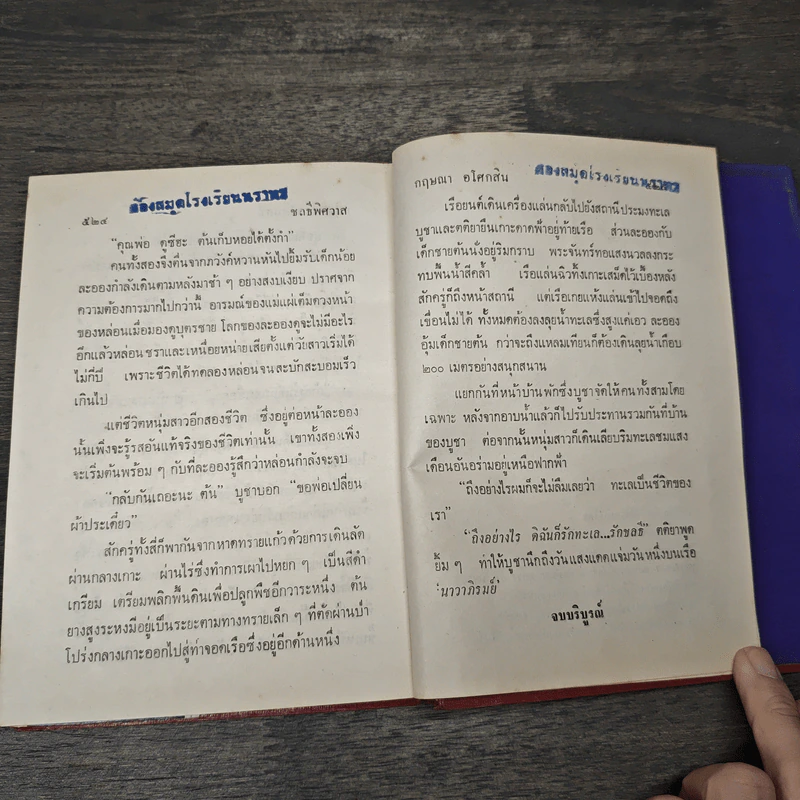 ห้องสมุดโรงเรียนนราทร
๕๒๔ ชลธีพิศวาส
"คุณพ่อ ดูซีฮะ ต้นเก็บหอยได้ตั้งกำ"
คนทั้งสองจึงตื่นจากภวังค์หวานหันไปยิ้มรับเด็กน้อย
ละอองกำลังเดินตามหลังมาช้า ๆ อย่างสงบเงียบ ปราศจาก
ความต้องการมากไปกว่านี้ อารมณ์ของแม่แผ่เต็มดวงหน้า
ของหล่อนเมื่อมองดูบุตรชาย โลกของละอองดูจะไม่มีอะไร
อีกแล้วหล่อนชราและเหนื่อยหน่ายเสียตั้งแต่วัยสาวเริ่มได้
ไม่กี่ปี เพราะชีวิตได้ทดลองหล่อนจนสะบักสะบอมเร็ว
เกินไป
แต่ชีวิตหนุ่มสาวอีกสองชีวิต ซึ่งอยู่ต่อหน้าละออง
นั้นเพิ่งจะรู้รสอันแท้จริงของชีวิตเท่านั้น เขาทั้งสองเพิ่ง
จะเริ่มต้นพร้อม ๆ กับที่ละอองรู้สึกว่าหล่อนกำลังจะจบ
"กลับกันเถอะนะ ต้น" บูชาบอก "ขอพ่อเปลี่ยน
ผ้าประเดี๋ยว"
สักครู่ทั้งสี่ก็พากันจากหาดทรายแก้วด้วยการเดินลัด
ผ่านกลางเกาะ ผ่านไร่ซึ่งทำการเผาไปหยก ๆ เป็นสีดำ
เกรียม เตรียมพลิกฟื้นดินเพื่อปลูกพืชอีกวาระหนึ่ง ต้น
ยางสูงระหงมีอยู่เป็นระยะตามทางทรายเล็ก ๆ ที่ตัดผ่านป่า
โปร่งกลางเกาะออกไปสู่ท่าจอดเรือซึ่งอยู่อีกด้านหนึ่ง
กฤษณา อโศกสิน ห้องสมุดโรงเรียนนราทร
เรือยนต์เดินเครื่องแล่นกลับไปยังสถานีประมงทะเล
บูชาและตติยายืนเกาะดาดฟ้าอยู่ท้ายเรือ ส่วนละอองกับ
เด็กชายต้นนั่งอยู่ริมกราบ พระจันทร์ทอแสงนวลลงกระ
ทบพื้นน้ำสีคล้ำ เรือแล่นฉิวทิ้งเกาะเสม็ดไว้เบื้องหลัง
สักครู่ก็ถึงหน้าสถานี แต่เรือเกยแห้งแล่นเข้าไปจอดถึง
เขื่อนไม่ได้ ทั้งหมดต้องลงลุยน้ำทะเลซึ่งสูงแค่เอว ละออง
อุ้มเด็กชายต้น กว่าจะถึงแหลมเทียนก็ต้องเดินลุยน้ำเกือบ
๒๐๐ เมตรอย่างสนุกสนาน
แยกกันที่หน้าบ้านพักซึ่งบูชาจัดให้คนทั้งสามโดย
เฉพาะ หลังจากอาบน้ำแล้วก็ไปรับประทานรวมกันที่บ้าน
ของบูชา ต่อจากนั้นหนุ่มสาวก็เดินเลียบริมทะเลชมแสง
เดือนอันอร่ามอยู่เหนือฟากฟ้า
"ถึงอย่างไรผมก็จะไม่ลืมเลยว่า ทะเลเป็นชีวิตของ
เรา"
"ถึงอย่างไร ดิฉันก็รักทะเล...รักชลธี" ตติยาพูด
ยิ้ม ๆ ทำให้บูชานึกถึงวันแสงแดดแจ่มวันหนึ่งบนเรือ
'นาวาภิรมย์'
จบบริบูรณ์